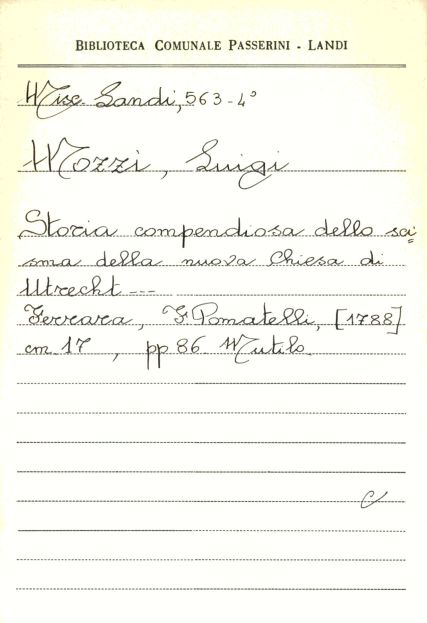 BIBLIOTECA COMUNALE PASSERINI - LANDI
Misc. Landi, 563 - 4°
Mozzi, Luigi
Storia compendiosa dello sci=
sma della nuova Chiesa di
Utrecht ---
Ferrara, F. Pomatelli, [1788]
cm. 17, pp 86. Mutilo.
C